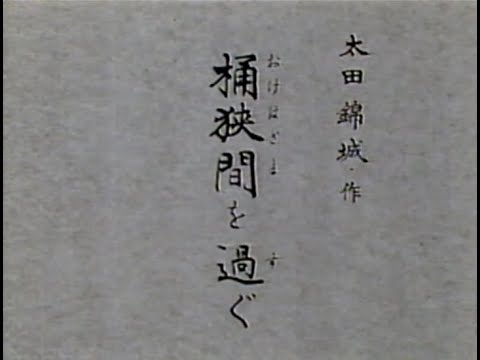 太田錦城・作
桶狭間を過ぐ
おけはざま
す